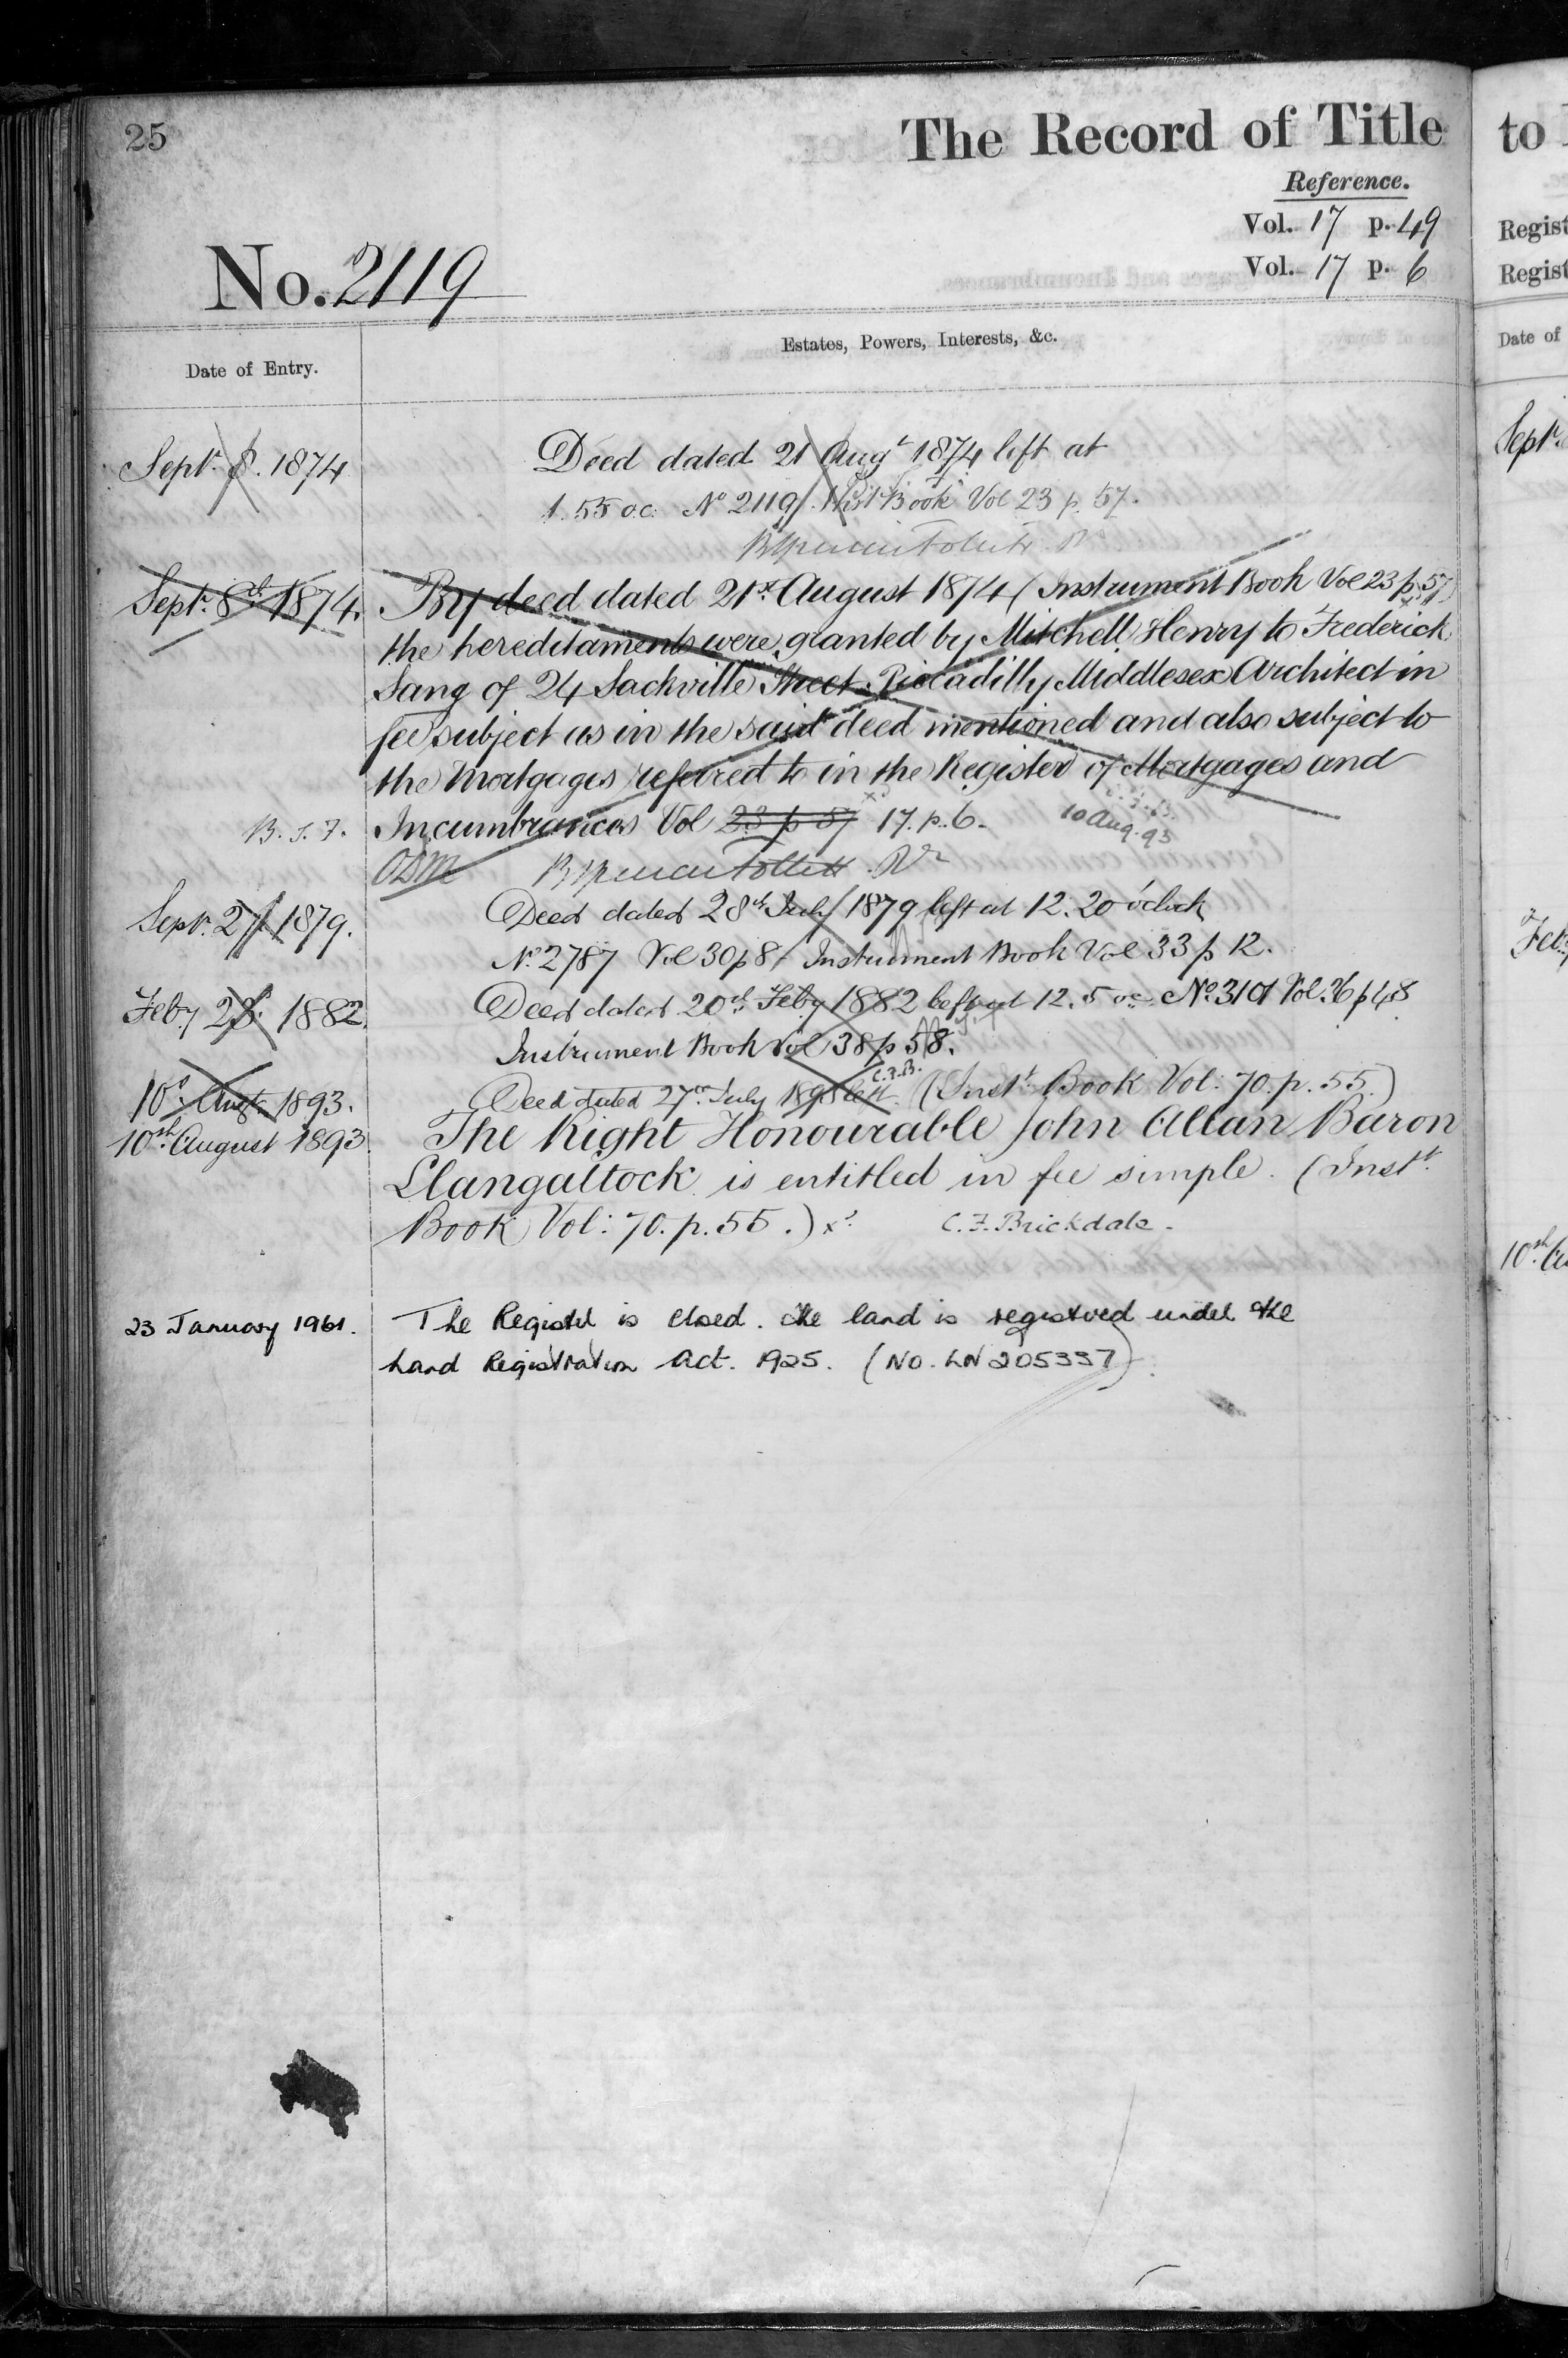 25
The Record of Title
Reference.
Vol. 17 p. 49
Vol. 17 p. 6
No. 2119
Date of Entry.
Estates, Powers, Interests, &c.
Sept. 8. 1874
Deed dated 21 Augt 1874 left at
1.55 oc. No 2119 Inst Book Vol 23 p. 57.
Sept. 8th 1874.
By deed dated 21st August 1874 (Instrument Book Vol 23 p. 57)
the hereditaments were granted by Mitchell Henry to Frederick
Sang of 24 Sackville Street Piccadilly Middlesex Architect in
fee subject as in the said deed mentioned and also subject to
the Mortgages referred to in the Register of Mortgages and
B.S.F. Incumbrances Vol 23 p 57 17. p. 6.
10 Aug. 93
Sept. 27 1879.
Deed dated 28th July 1879 left at 12.20 o'clock
No 2787 Vol 30 p 8 Instrument Book Vol 33 p 12.
Feby 28. 1882.
Deed dated 20th Feby 1882 left at 12.5 oc No 3101 Vol. 36 p 48
Instrument Book Vol 38 p 58.
C.F.B.
10th Augt. 1893.
Deed dated 27th July 1893 left (Instt Book Vol: 70. p. 55.)
10th August 1893.
The Right Honourable John Allan Baron
Llangattock is entitled in fee simple. (Instt
Book Vol: 70. p. 55.)
C.F. Brickdale.
23 January 1961.
The Register is closed. The land is registered under the
Land Registration Act. 1925. (No. LN 205337)
to
Regist
Regist
Date of
Sept.
Feb
10th